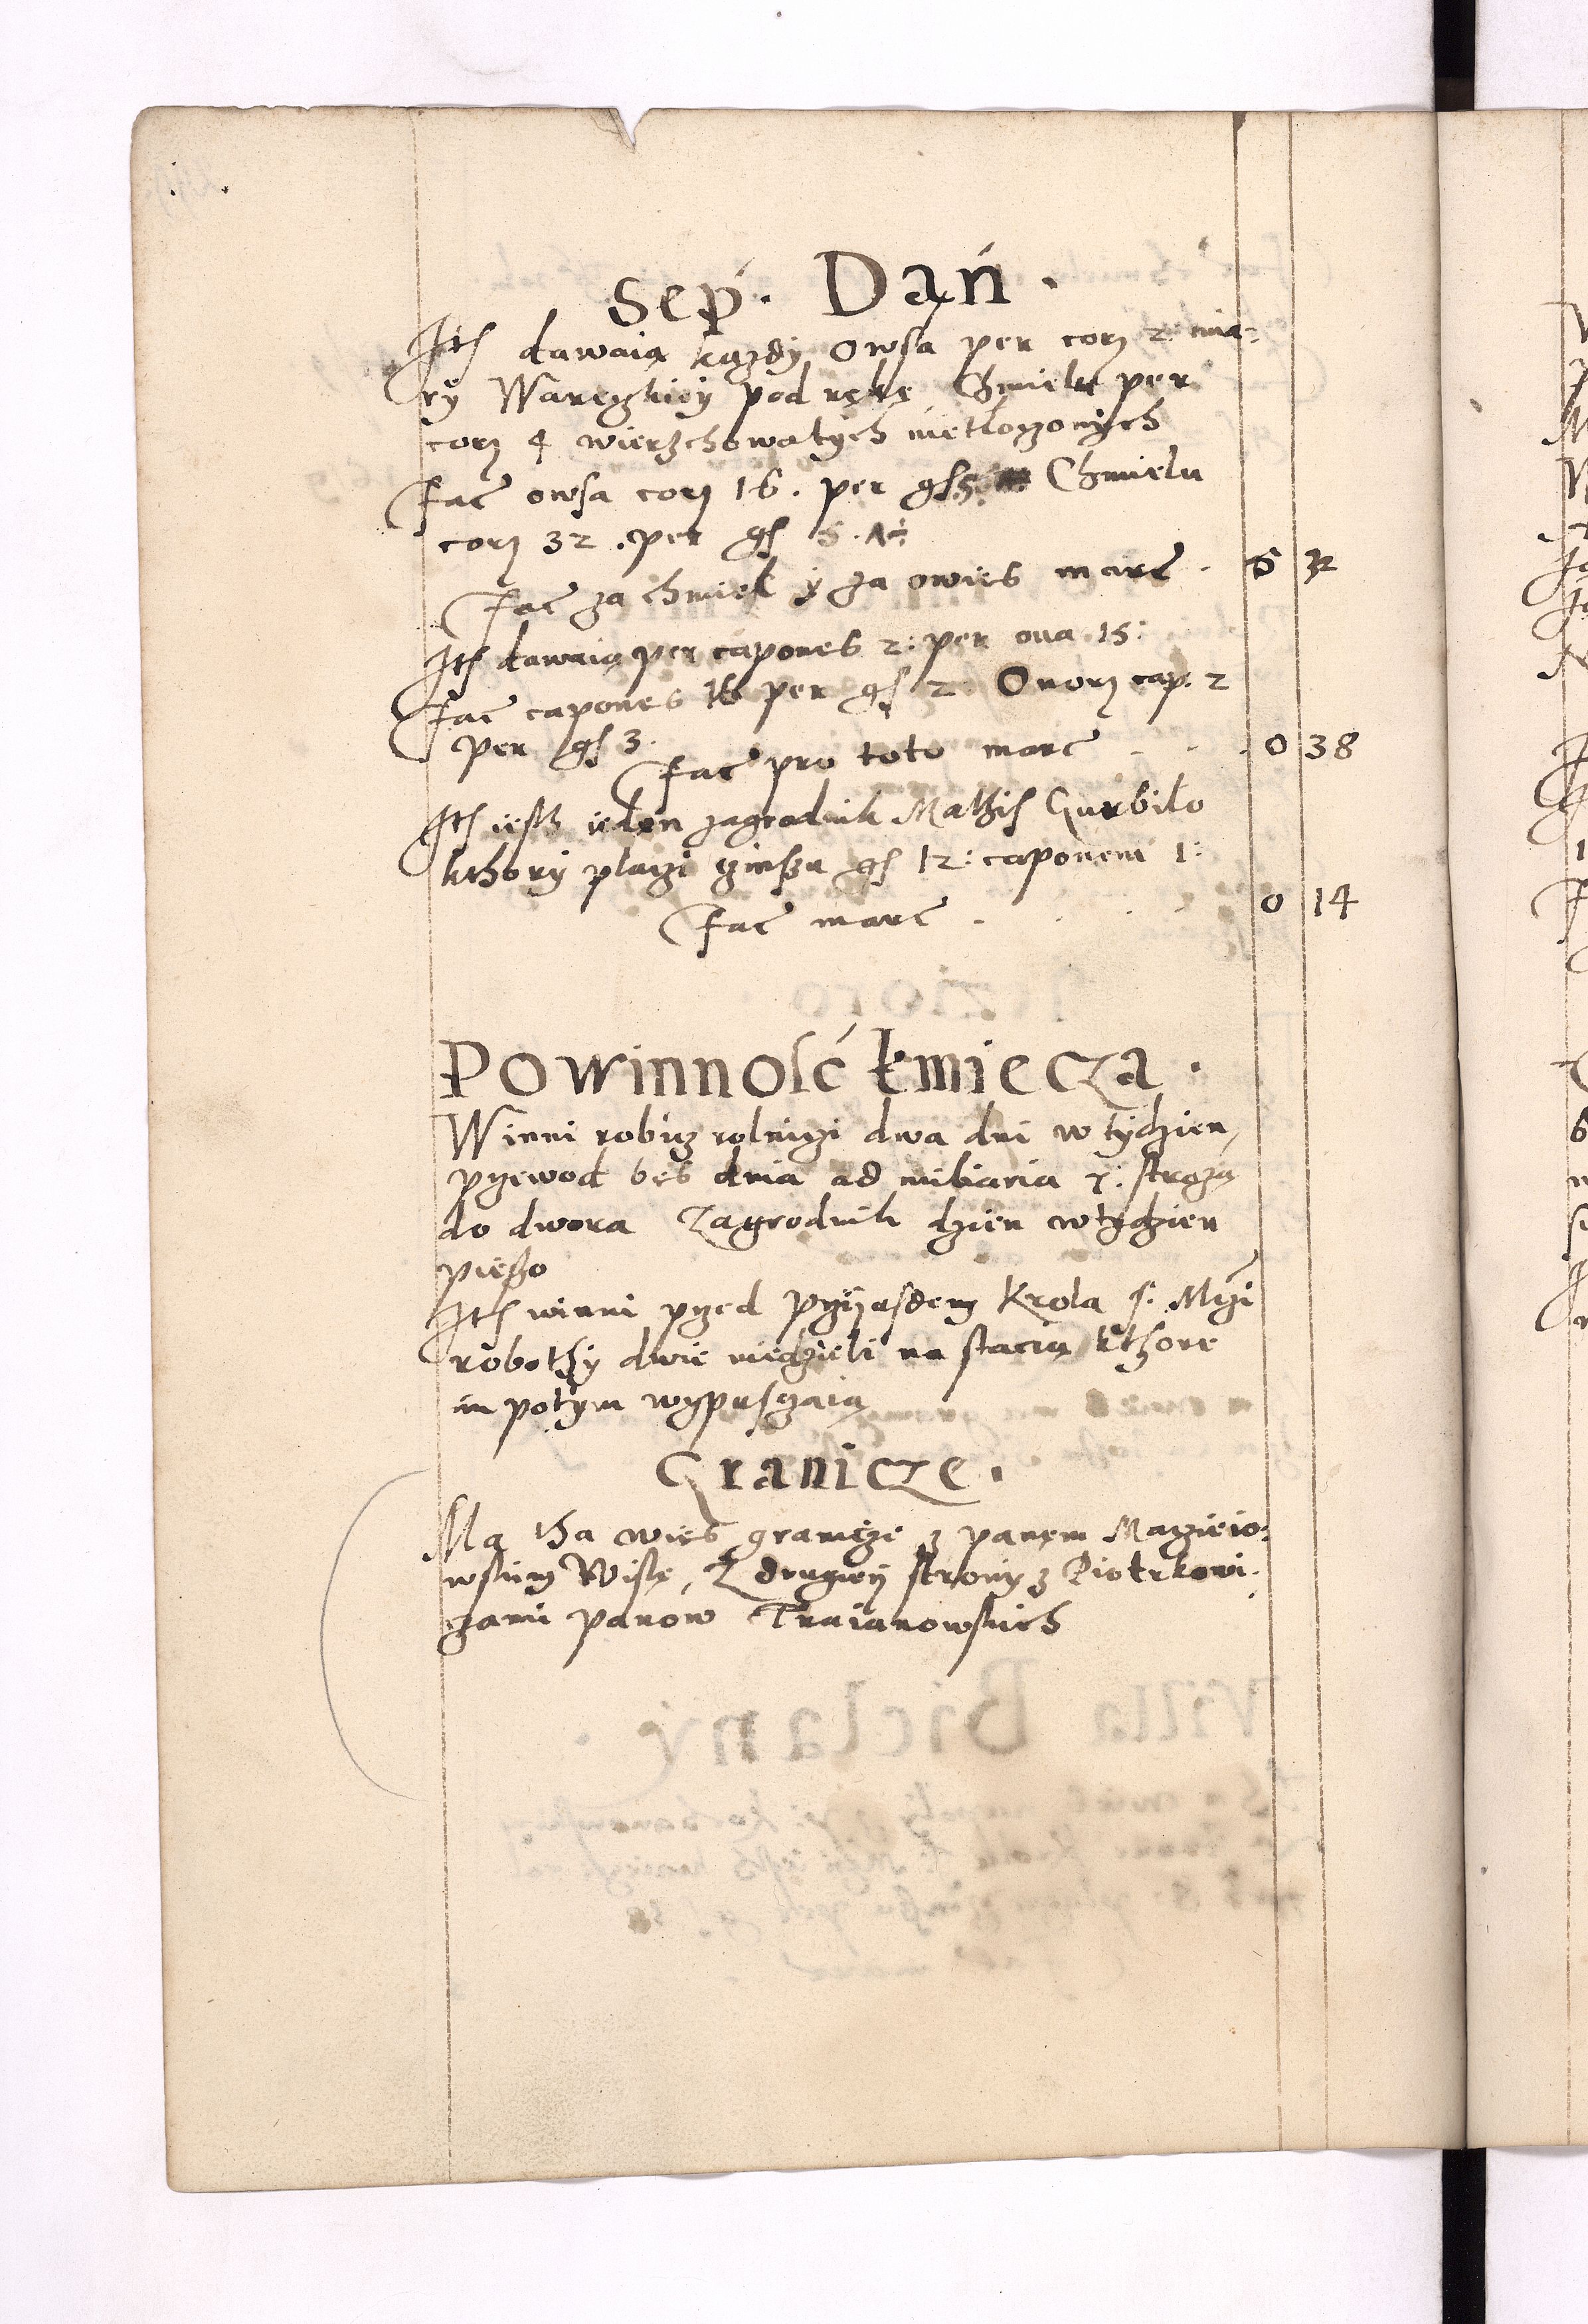 Sep. Dań.
Ith dawaią każdy owsa per cor 2 mia-
ry Wareczkiey pod rękę Chmielu per
cor 4 wierzchowatych nietłoczonych
fac owsa cor 16. per gs 5 Chmielu
cor 32. per gs
fac za chmiel y za owies marc. 32
Ith dawaią per capones 2: per oua 15:
fac capones 16 per gs 2 Ouor cap. 2
per gs 3.
fac pro toto marc . . . 0 38
Ith iesth ieden zagrodnik Mathis Gurbilo
kthory placzi czinszu gs 12: caponem 1:
fac marc . . . 0 14
Powinnosć kmiecza.
Winni robicz rolniczi dwa dni w tydzien,
przewod bes dnia ad miliaria 7: stroza
do dwora Zagrodnik dzien w tydzien
pieszo
Ith winni przed przyiasdem Krola s: Mczi
robothy dwie niedzieli na stacią kthore
im potym wypusczaią
Granicze.
Ma tha wies granicze z panem Maczieio-
wskim Wisłę, Z drugiey strony z Piotrkowi-
czami panów Traianowskich